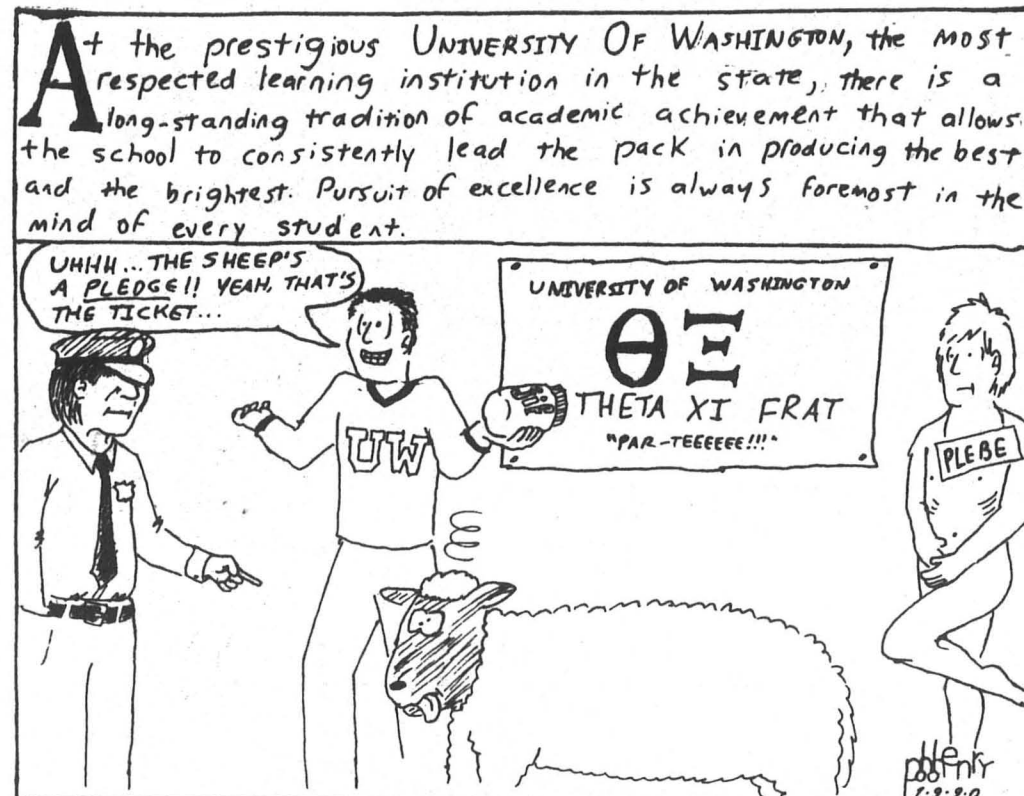 At the prestigious UNIVERSITY OF WASHINGTON, the most
respected learning institution in the state, there is a
long-standing tradition of academic achievement that allows
the school to consistently lead the pack in producing the best
and the brightest. Pursuit of excellence is always foremost in the
mind of every student.
UHHH... THE SHEEP'S
A PLEDGE!! YEAH, THAT'S
THE TICKET...
UNIVERSITY OF WASHINGTON
ΘΞ
THETA XI FRAT
"PAR-TEEEEEE!!!"
UW
PLEBE